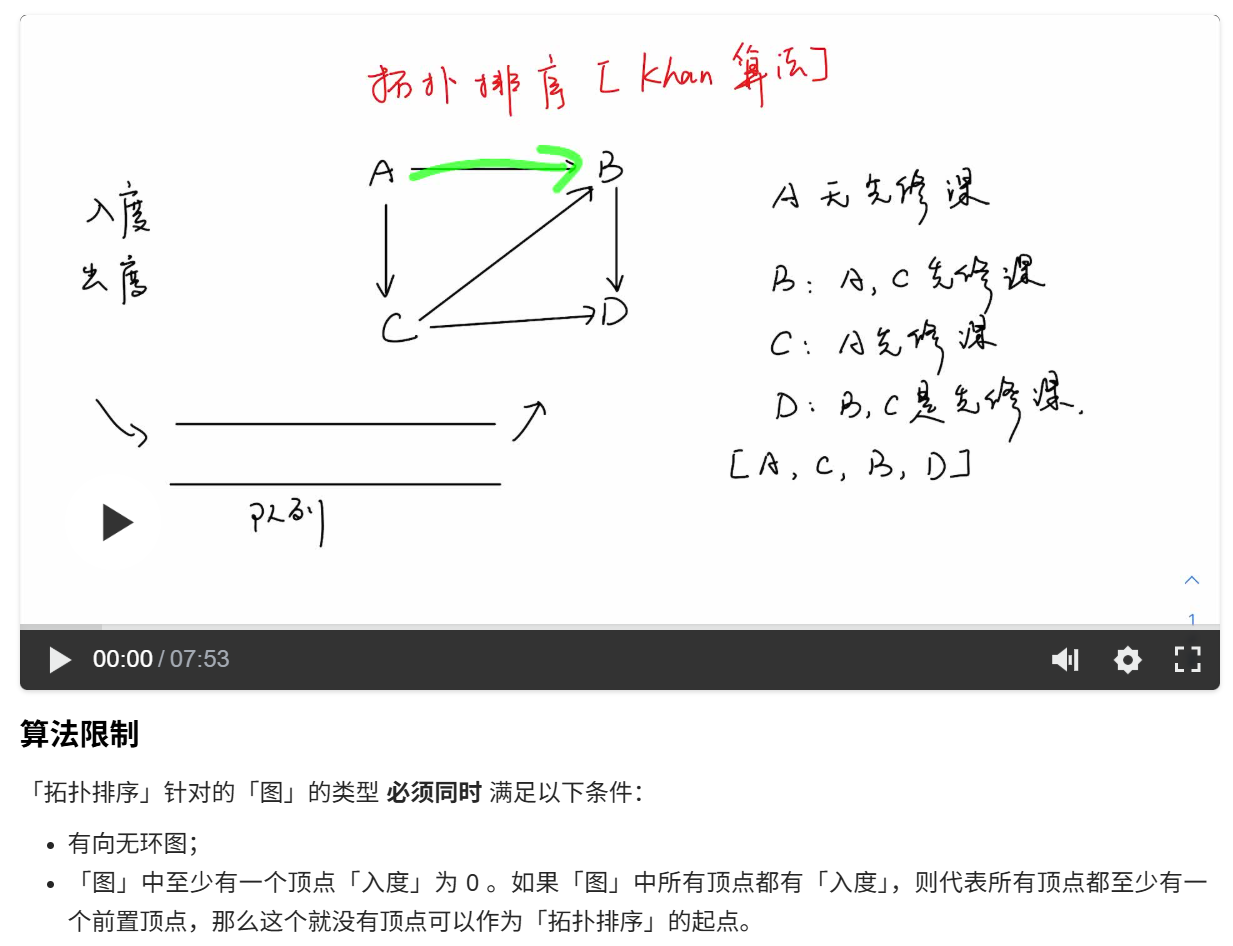 拓扑排序 [ Khan 算法 ]
A
B
C
D
入度
出度
队列
A 无先修课
B: A, C 先修课
C: A 先修课
D: B, C 是先修课.
[A, C, B, D]
1
00:00 / 07:53
算法限制
「拓扑排序」针对的「图」的类型 必须同时 满足以下条件：
• 有向无环图；
• 「图」中至少有一个顶点「入度」为 0 。如果「图」中所有顶点都有「入度」，则代表所有顶点都至少有一
个前置顶点，那么这个就没有顶点可以作为「拓扑排序」的起点。